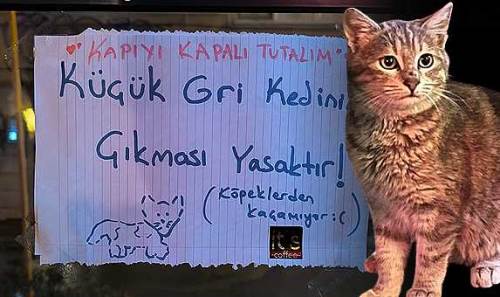 "KAPIYI KAPALI TUTALIM"
Küçük Gri Kedinin
Çıkması Yasaktır!
(Köpeklerden
kaçamıyor :( )
it's
coffee